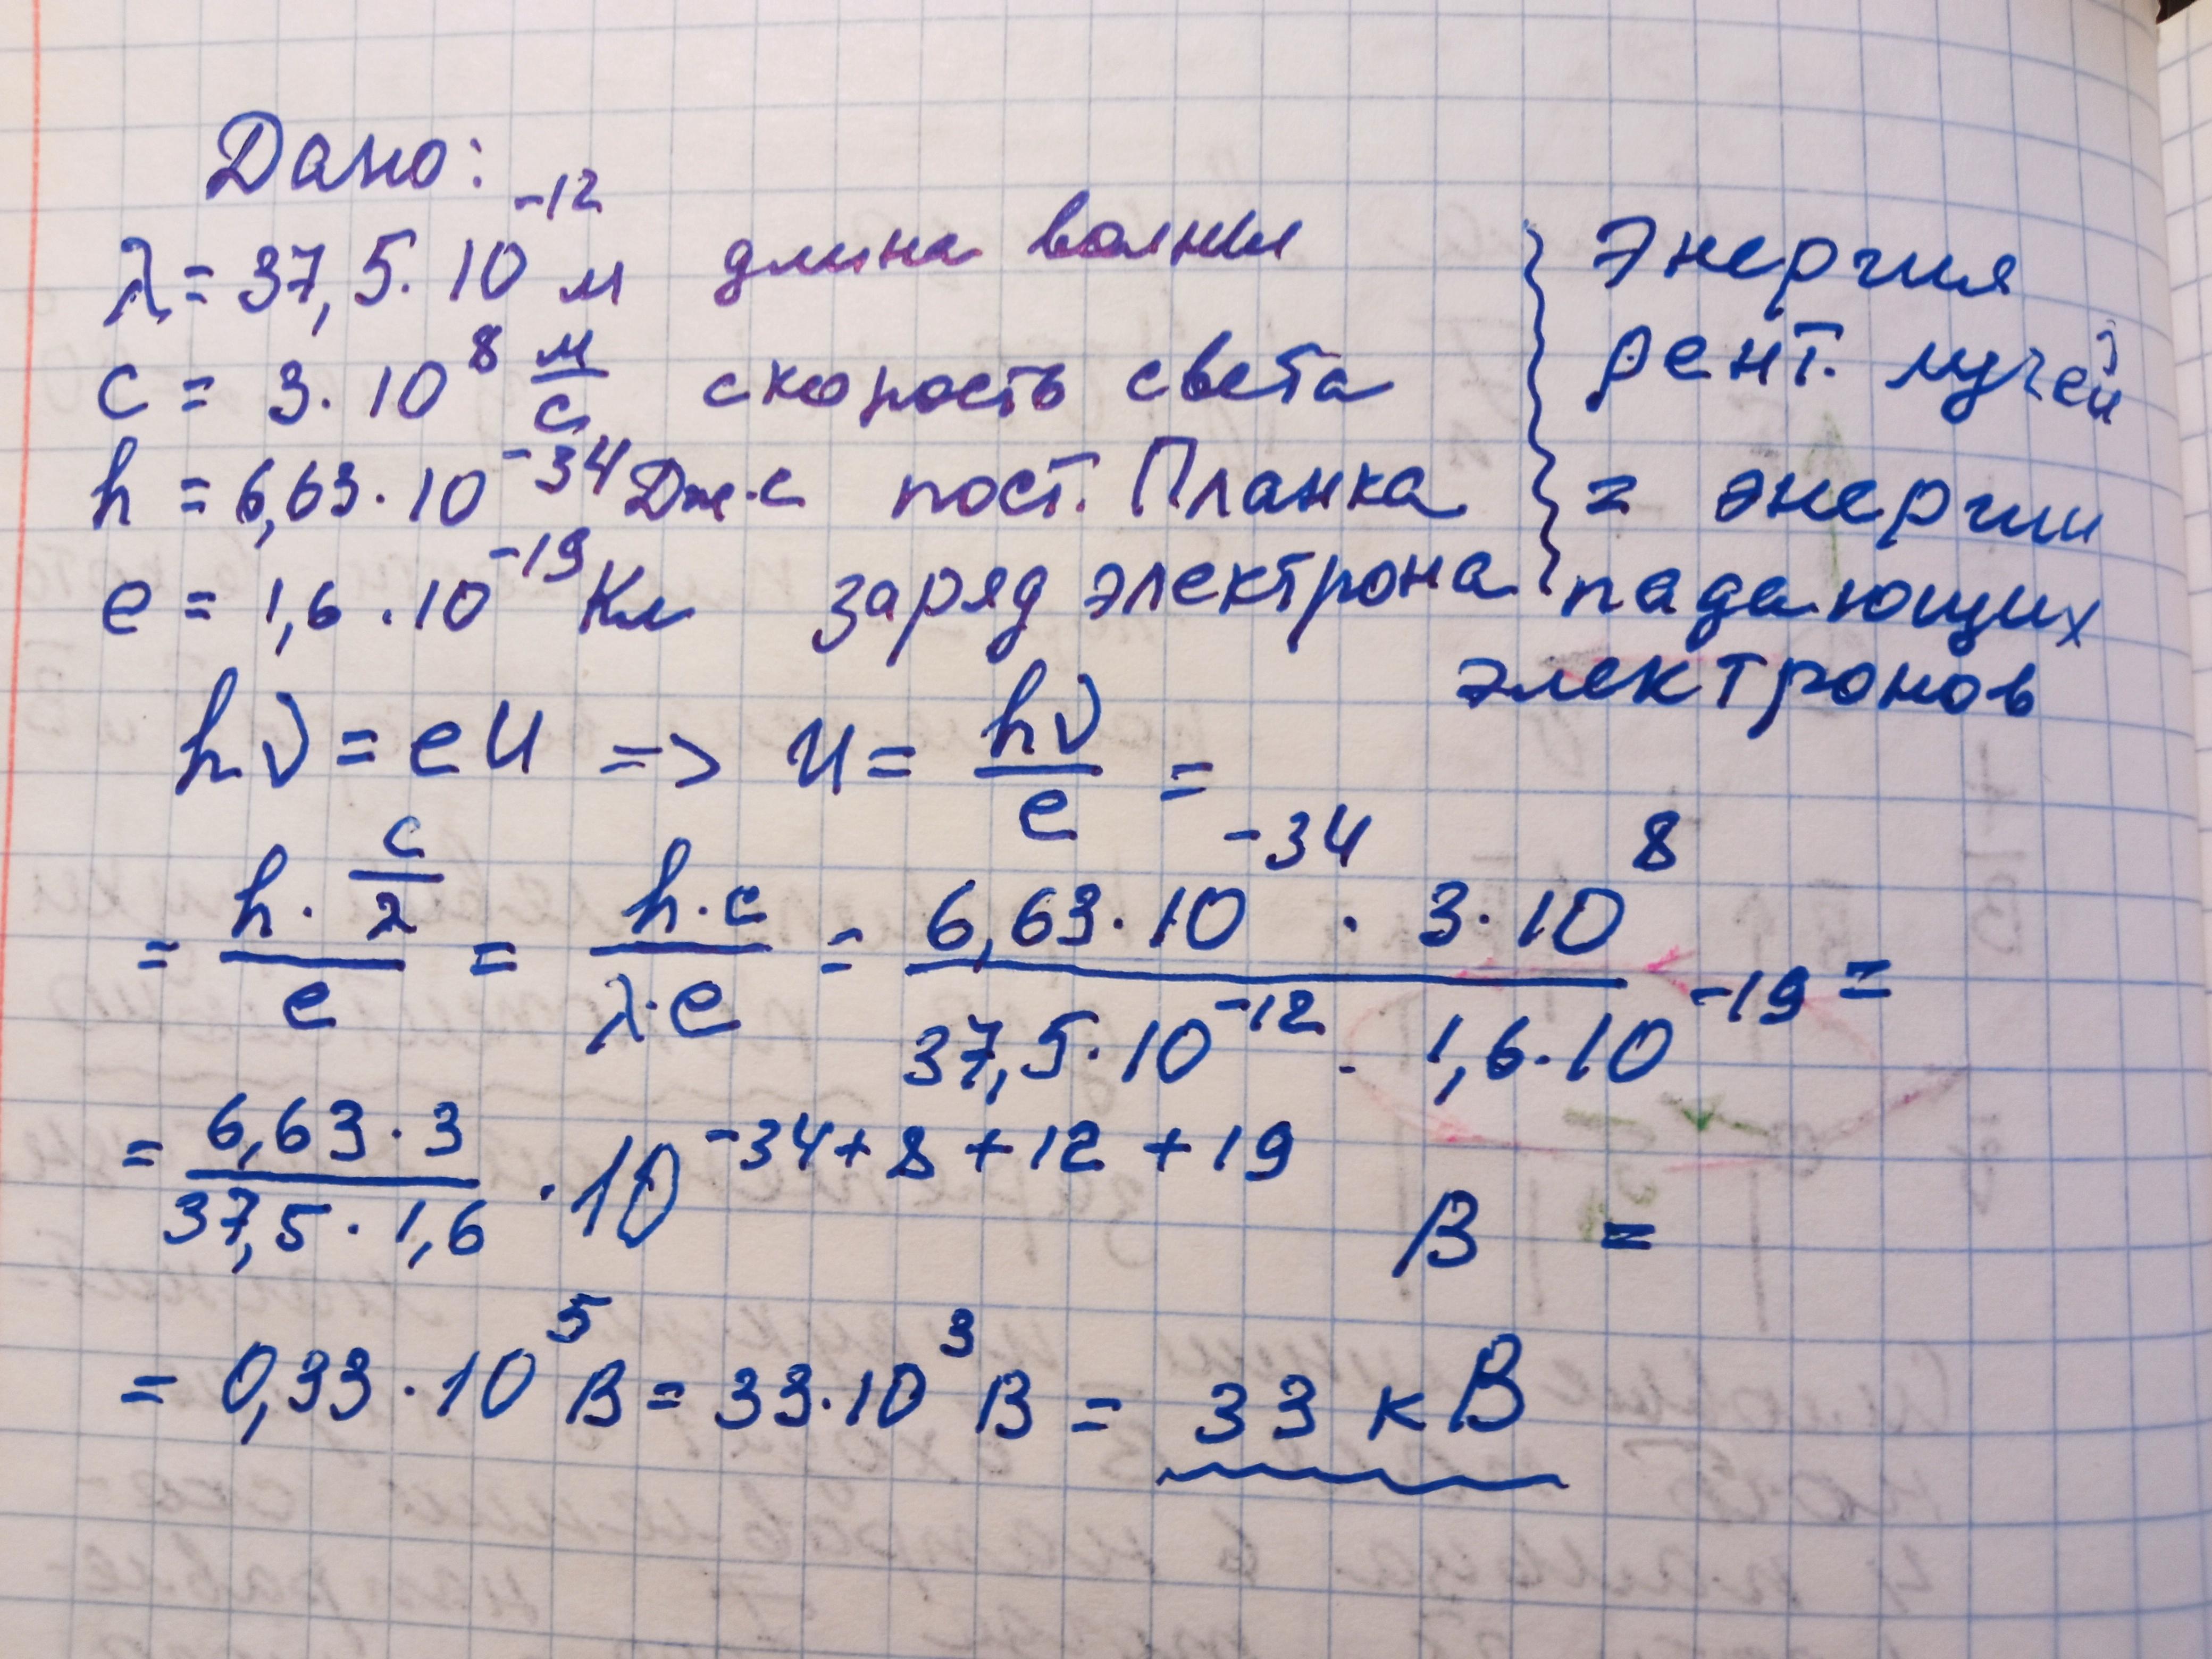 Дано:
λ = 37,5·10⁻¹² м длина волны
c = 3·10⁸ м/с скорость света
h = 6,63·10⁻³⁴ Дж·с пост. Планка
e = 1,6·10⁻¹⁹ Кл заряд электрона
Энергия
рент. лучей
= энергии
падающих
электронов
hν = eU => U = hν/e =
= (h · c/λ)/e = (h·c)/(λ·e) = (6,63·10⁻³⁴ · 3·10⁸)/(37,5·10⁻¹² · 1,6·10⁻¹⁹) =
= (6,63·3)/(37,5·1,6) · 10⁻³⁴⁺⁸⁺¹²⁺¹⁹ В =
= 0,33·10⁵ В = 33·10³ В = 33 кВ